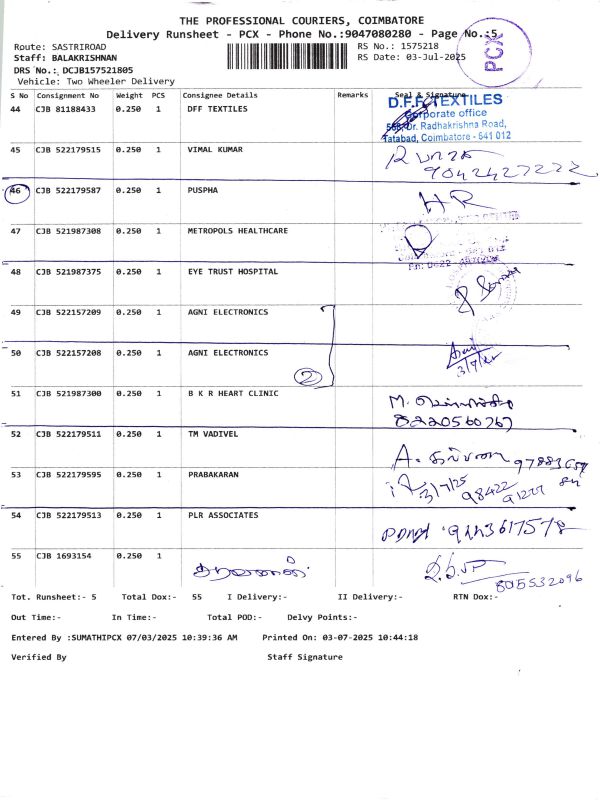 THE PROFESSIONAL COURIERS, COIMBATORE
Delivery Runsheet - PCX - Phone No.:9047080280 - Page No.:5
PCX
Route: SASTRIROAD
RS No.: 1575218
Staff: BALAKRISHNAN
RS Date: 03-Jul-2025
DRS No.: DCJB157521805
Vehicle: Two Wheeler Delivery
S No Consignment No Weight PCS Consignee Details Remarks Seal & Signature
44 CJB 81188433 0.250 1 DFF TEXTILES
D.F.F. TEXTILES
Corporate office
Dr. Radhakrishna Road,
Tatabad, Coimbatore - 641 012
45 CJB 522179515 0.250 1 VIMAL KUMAR
9042427222
46 CJB 522179587 0.250 1 PUSPHA
HR
47 CJB 521987308 0.250 1 METROPOLS HEALTHCARE
48 CJB 521987375 0.250 1 EYE TRUST HOSPITAL
49 CJB 522157209 0.250 1 AGNI ELECTRONICS
50 CJB 522157208 0.250 1 AGNI ELECTRONICS
2
3/7/25
51 CJB 521987300 0.250 1 B K R HEART CLINIC
M.
8220560767
52 CJB 522179511 0.250 1 TM VADIVEL
A. கல்பனா
53 CJB 522179595 0.250 1 PRABAKARAN
3/7/25
98422
91277
54 CJB 522179513 0.250 1 PLR ASSOCIATES
55 CJB 1693154 0.250 1
8015532096
Tot. Runsheet:- 5 Total Dox:- 55 I Delivery:- II Delivery:- RTN Dox:-
Out Time:- In Time:- Total POD:- Delvy Points:-
Entered By :SUMATHIPCX 07/03/2025 10:39:36 AM Printed On: 03-07-2025 10:44:18
Verified By Staff Signature